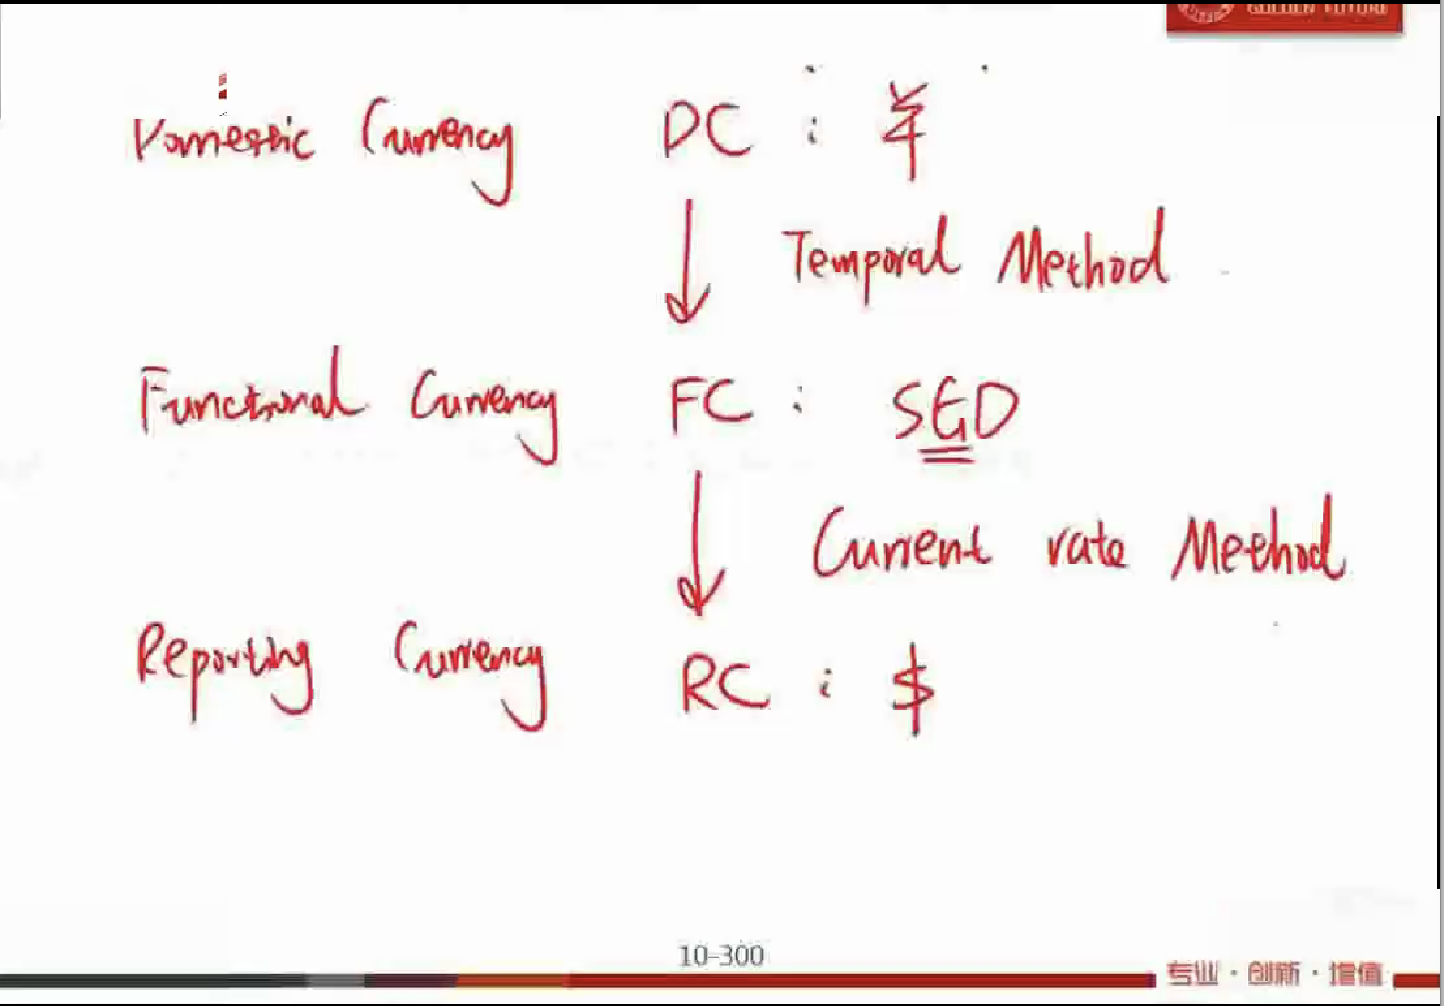 GOLDEN FUTURE
Domestic Currency DC : ¥
Temporal Method
Functional Currency FC : SGD
Current rate Method
Reporting Currency RC : $
10-300
专业·创新·增值